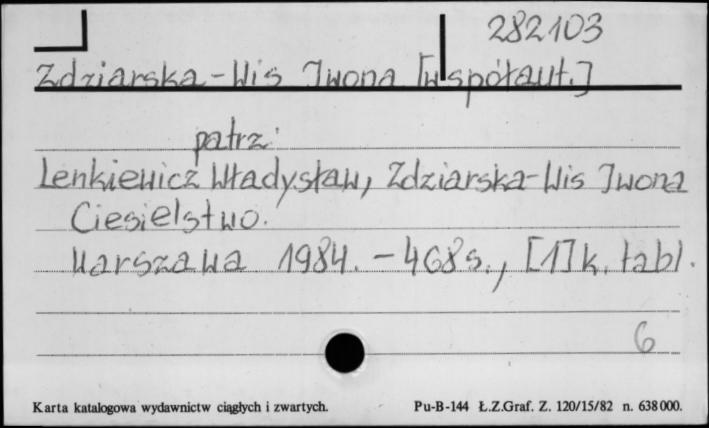 282103
Zdziarska-Wis Iwona [współaut.]
patrz:
Lenkiewicz Władysław, Zdziarska-Wis Iwona
Ciesielstwo.
Warszawa 1984. - 468 s., [1] k. tabl.
6
Karta katalogowa wydawnictw ciągłych i zwartych. Pu-B-144 Ł.Z.Graf. Z. 120/15/82 n. 638000.